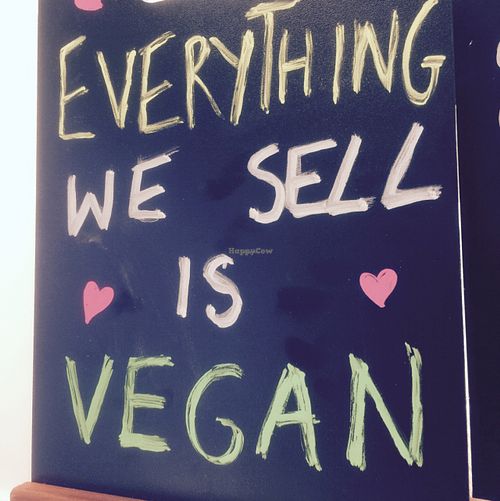 EVERYTHING
WE SELL
IS
VEGAN
HappyCow